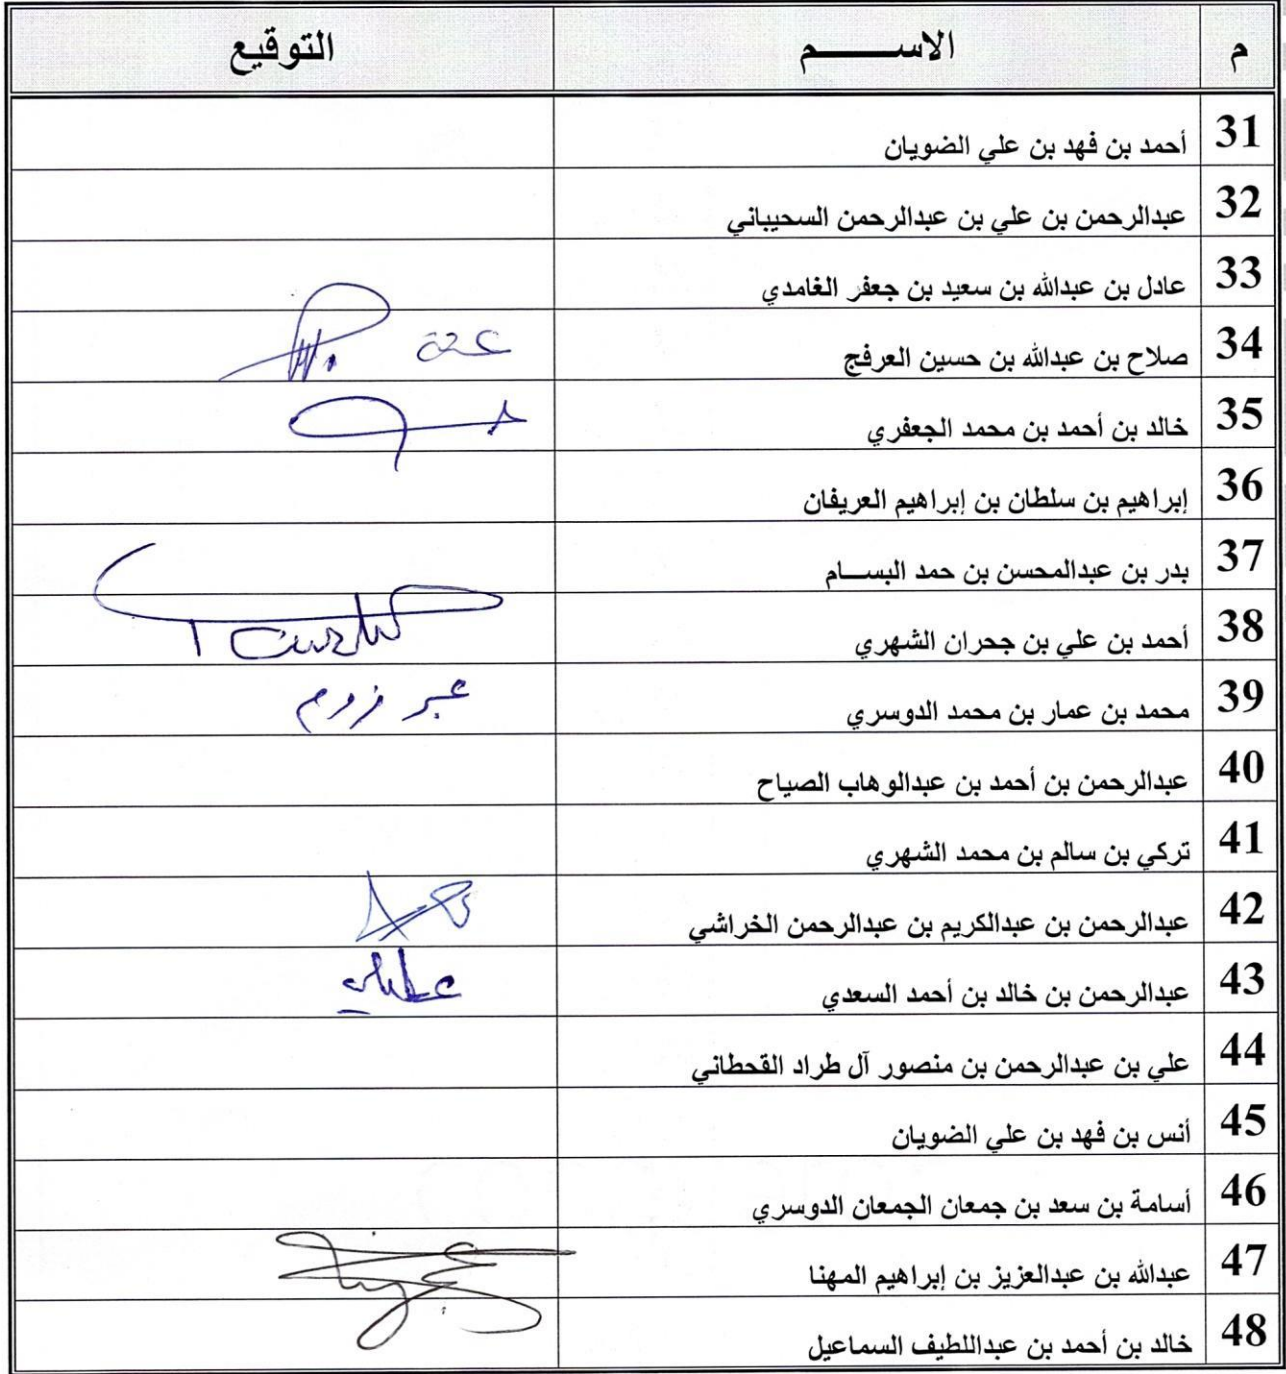 م الاســـــم التوقيع
31 أحمد بن فهد بن علي الضويان
32 عبدالرحمن بن علي بن عبدالرحمن السحيباني
33 عادل بن عبدالله بن سعيد بن جعفر الغامدي
34 صلاح بن عبدالله بن حسين العرفج
35 خالد بن أحمد بن محمد الجعفري
36 إبراهيم بن سلطان بن إبراهيم العريفان
37 بدر بن عبدالمحسن بن حمد البســام
38 أحمد بن علي بن جحران الشهري
39 محمد بن عمار بن محمد الدوسري عبر زووم
40 عبدالرحمن بن أحمد بن عبدالوهاب الصياح
41 تركي بن سالم بن محمد الشهري
42 عبدالرحمن بن عبدالكريم بن عبدالرحمن الخراشي
43 عبدالرحمن بن خالد بن أحمد السعدي
44 علي بن عبدالرحمن بن منصور آل طراد القحطاني
45 أنس بن فهد بن علي الضويان
46 أسامة بن سعد بن جمعان الجمعان الدوسري
47 عبدالله بن عبدالعزيز بن إبراهيم المهنا
48 خالد بن أحمد بن عبداللطيف السماعيل